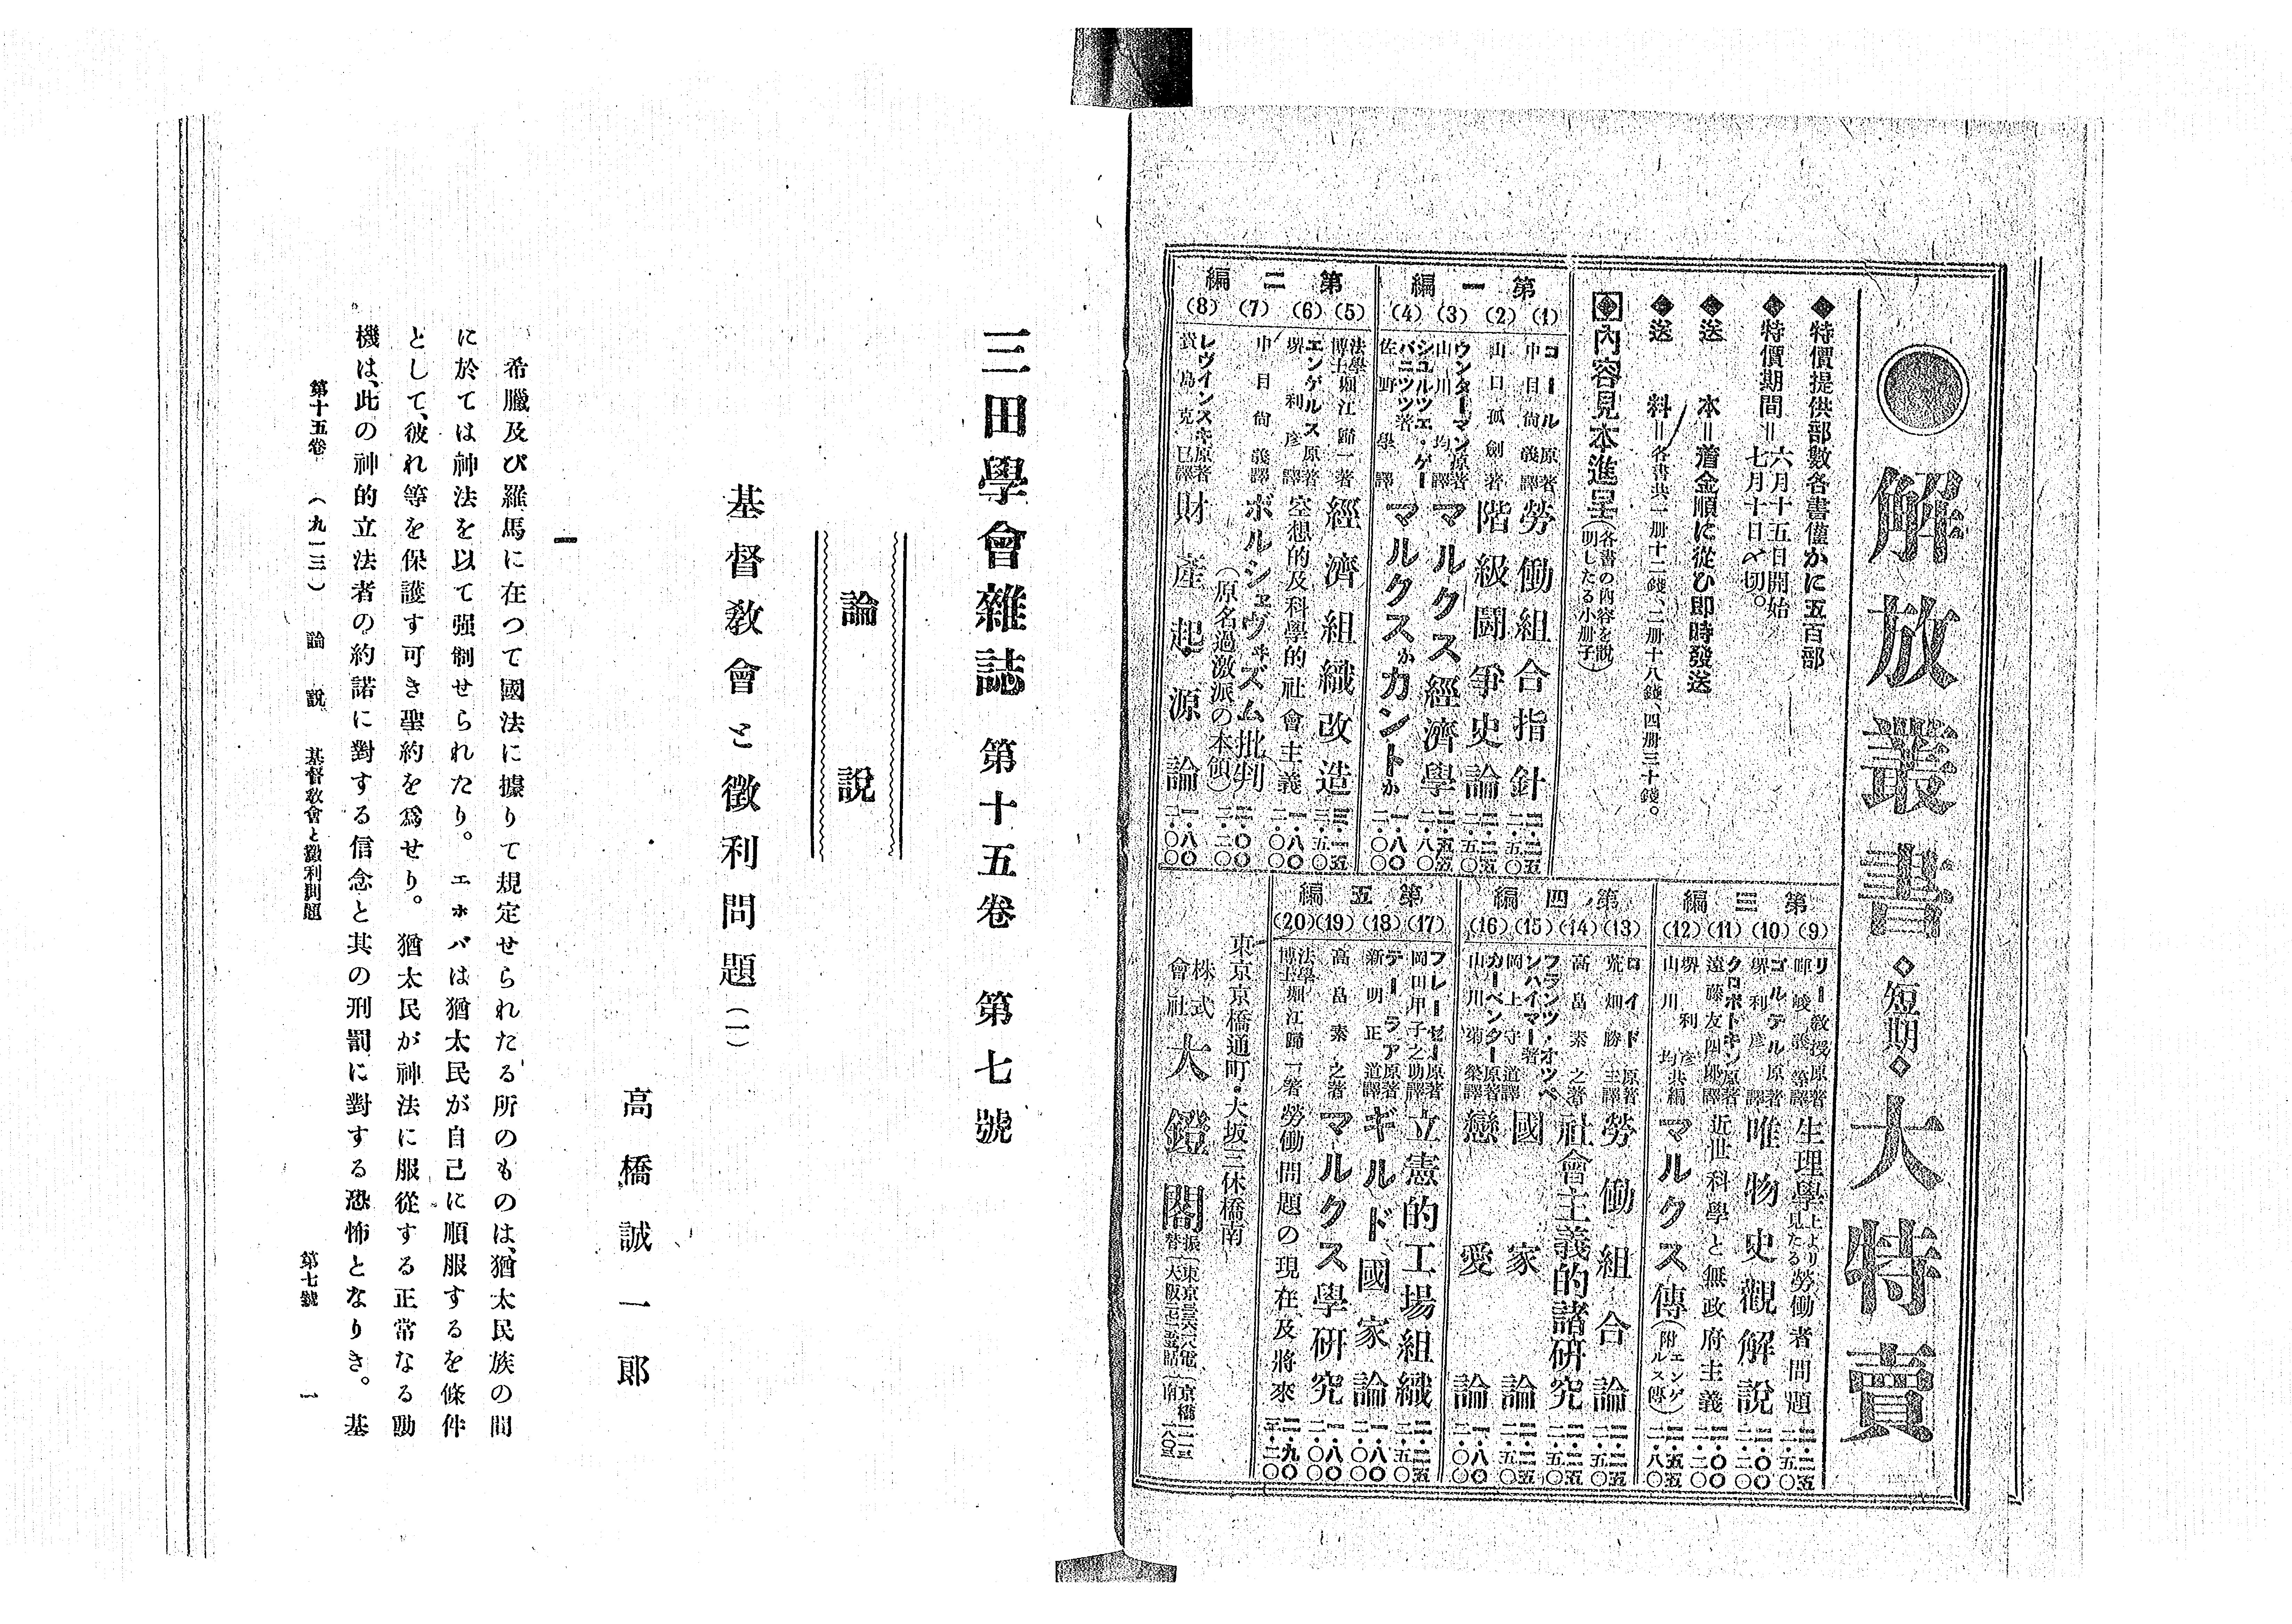 解放叢書◇短期◇大特賣
◆特價提供部數各書僅かに五百部
◆特價期間＝六月十五日開始
七月十日〆切。
◆送本＝着金順に從ひ即時發送
◆送料＝各書共一册十二錢、二册十八錢、四册三十錢。
內容見本進呈（各書の內容を說
明したる小册子）
第一編
(1) コール原著 中目尙義譯 勞働組合指針
(2) 山口孤劍著 階級鬪爭史論
(3) ウンターマン原著 山川均譯 マルクス經濟學
(4) シユルツエ・ゲー
バニツツ著 佐野學譯 マルクスかカントか
第二編
(5) 法學博士堀江歸一著 經濟組織改造
(6) エンゲルス原著 堺利彥譯 空想的及科學的社會主義
(7) 中目尙義譯 ボルシェヴィズム批判
（原名過激派の本領）
(8) レヴインスキ原著 貴島克己譯 財產起源論
第三編
(9) リー敎授原著 暉峻義等譯 生理學上より見たる勞働者問題
(10) ゴルテル原著 堺利彥譯 唯物史觀解說
(11) クロポトキン原著 遠藤友四郞譯 近世科學と無政府主義
(12) 堺利彥 山川均共編 マルクス傳（附エンゲルス傳）
第四編
(13) ロイド原著 荒畑勝三譯 勞働組合論
(14) 高畠素之著 社會主義的諸研究
(15) フランツ・オツペ
ンハイマー著 岡上守道譯 國家論
(16) カーペンター原著 山川菊榮譯 戀愛論
第五編
(17) フレーゼー原著 岡田甲子之助譯 立憲的工場組織
(18) テーラア原著 新明正道譯 ギルド國家論
(19) 高畠素之著 マルクス學硏究
(20) 法學博士堀江歸一著 勞働問題の現在及將來
東京京橋通町・大坂三休橋南
株式會社 大鐙閣
三田學會雜誌 第十五卷 第七號
論說
基督敎會と徵利問題（一）
高橋誠一郞
一
希臘及び羅馬に在つて國法に據りて規定せられたる所のものは、猶太民族の間
に於ては神法を以て强制せられたり。エホバは猶太民が自己に順服するを條件
として、彼れ等を保護す可き聖約を爲せり。猶太民が神法に服從する正常なる動
機は、此の神的立法者の約諾に對する信念と其の刑罰に對する恐怖となりき。基
第十五卷 （九一三） 論說 基督敎會と徵利問題 第七號 一